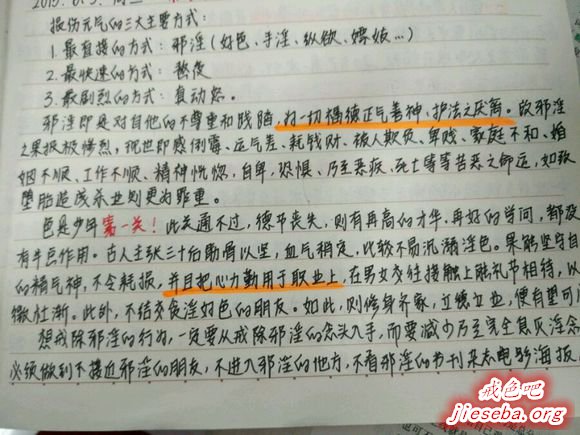 2015.6.3. 周三
损伤元气的三大主要方式:
1.最直接的方式: 邪淫(好色、手淫、纵欲、嫖娼...)
2.最快速的方式: 熬夜
3.最剧烈的方式: 真动怒。
邪淫即是对自他的不尊重和践踏,为一切福德正气善神、护法之厌离。故邪淫
之果报极惨烈,现世即感倒霉、运气差、耗钱财、被人欺负、卑贱、家庭不和、婚
姻不顺、工作不顺、精神恍惚,自卑,恐惧、乃至恶疾、死亡等等苦恶之命运,如致
堕胎造成杀业则更为罪重。
色是少年第一关!此关通不过,德乎丧失,则有再高的才华、再好的学问,都没
有半点作用。古人主张三十后筋骨以坚,血气稍定,比较不易沉溺淫色。果能坚守自
的精气神,不令耗损,并且把心力勤用于职业上,在男女交往接触上能礼节相待,以
微杜渐。此外,不结交伎淫好色的朋友。如此,则修身齐家,立德立业,便有望可
想戒除邪淫的行为,一定要从戒除邪淫的念头入手,而要减少乃至完全息灭淫念
必须做到不接近邪淫的朋友,不进入邪淫的地方,不看邪淫的书刊杂志电影海报
戒色吧
jieseba.org